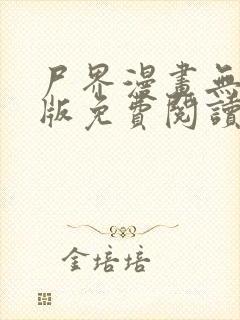 尸界漫畫無
版免費閱讀
金培培